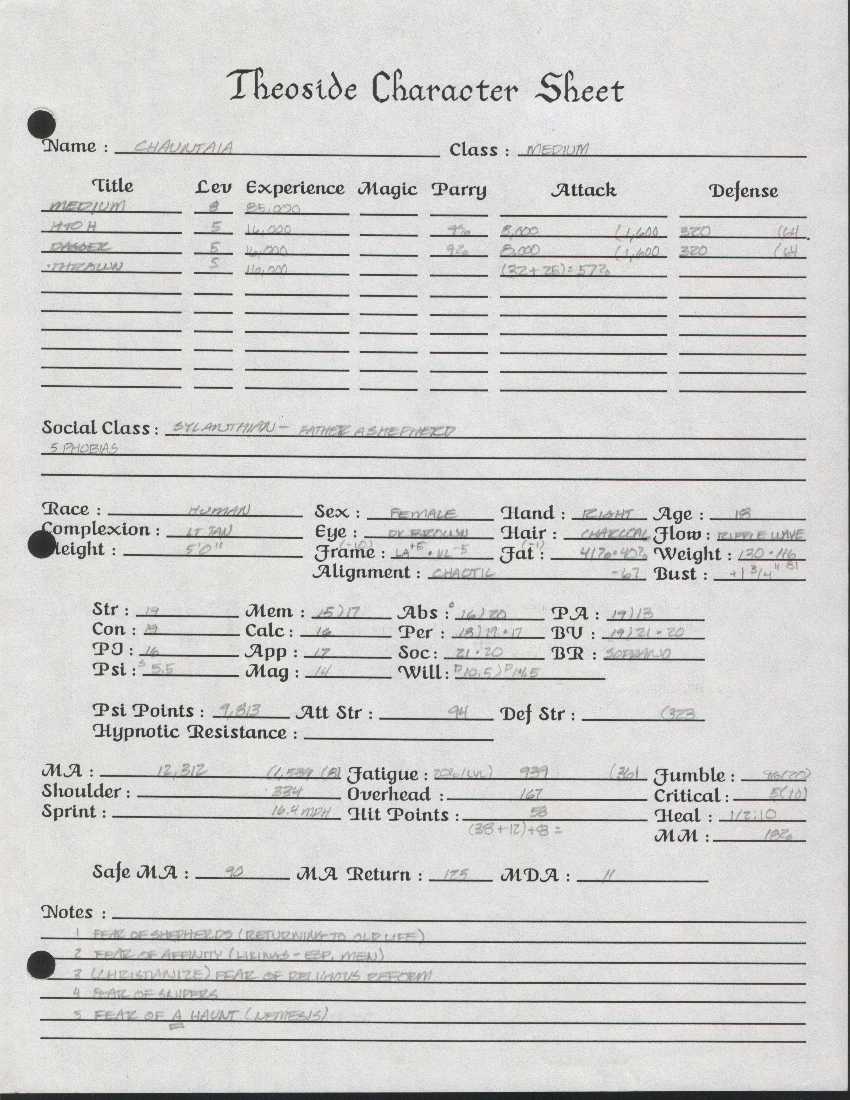 Theoside Character Sheet
Name : CHAUNTAIA Class : MEDIUM
Title Lev Experience Magic Parry Attack Defense
MEDIUM 8 85,000
HTO H 5 16,000 9% 8,000 (1,600 320 (64
DAGGER 5 16,000 9% 8,000 (1,600 320 (64
THROWN 5 16,000 (32+25)=57%
Social Class : SYLANTHIAN - FATHER A SHEPHERD
5 PHOBIAS
Race : HUMAN Sex : FEMALE Hand : RIGHT Age : 18
Complexion : LT TAN Eye : DK BROWN Hair : CHARCOAL Flow : RIPPLE WAVE
Height : 5'0" Frame : Fat : 41%·40% Weight : 130·116
Alignment : CHAOTIC -67 Bust : +1 3/4"
Str : 19 Mem : 15)17 Abs : 16)20 PA : 19)13
Con : 19 Calc : 16 Per : 18)19·17 BV : 19)21·20
PI : 16 App : 17 Soc : 21·20 BR : SOPRANO
Psi : 5.5 Mag : 14 Will :
Psi Points : 9,813 Att Str : 94 Def Str : (323
Hypnotic Resistance :
MA : 12,312 (1,539 (8) Fatigue : 939 (36) Fumble :
Shoulder : 334 Overhead : 167 Critical : 5(10)
Sprint : 16.4 MPH Hit Points : 58 Heal : 1/2:10
(38+12)+8 = MM : 18%
Safe MA : 90 MA Return : 125 MDA : 11
Notes :
1 FEAR OF SHEPHERDS (RETURNING TO OLD LIFE)
2 FEAR OF AFFINITY (LIKINGS - ESP. MEN)
3 (CHRISTIANIZE) FEAR OF RELIGIOUS REFORM
4 FEAR OF SNIPERS
5 FEAR OF A HAUNT (NEMESIS)